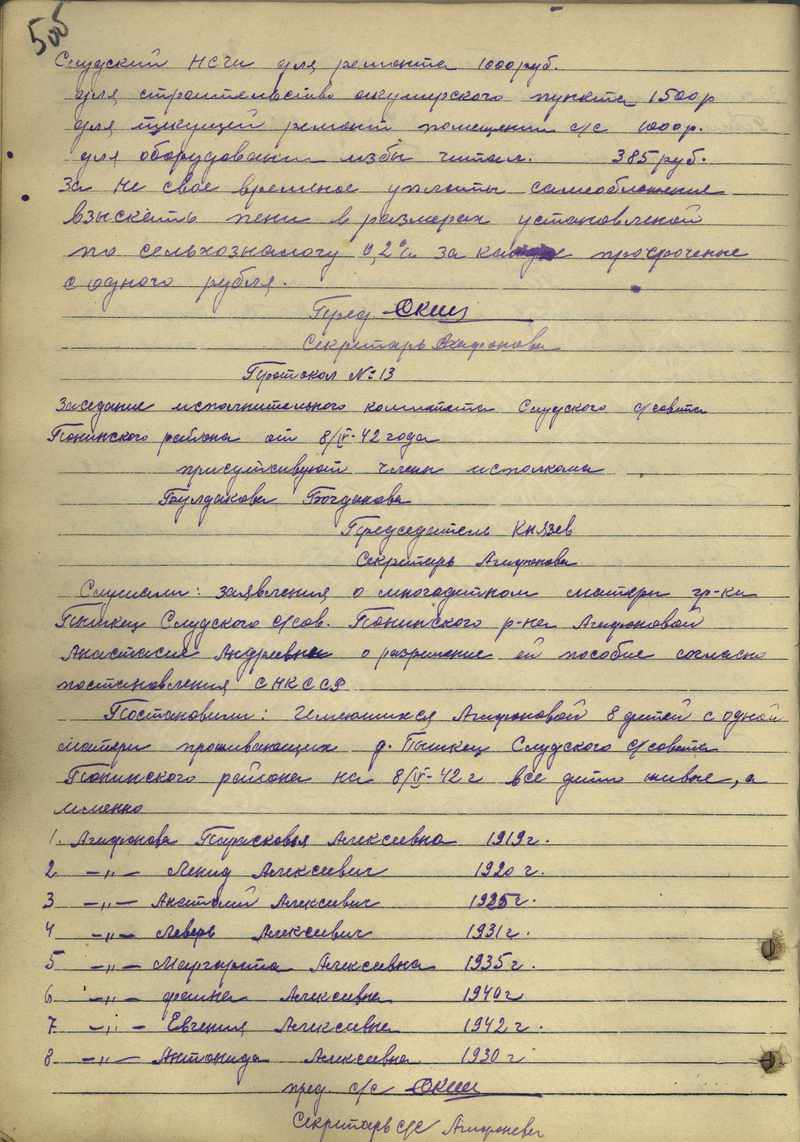 505
Слудский НСШ для ремонта 1000 руб.
для строительство акушерского пункта 1500 р
для текущей ремонт помещении с/с 1000 р.
для оборудовании избы читал. 385 руб.
За не свое временое уплоты самообложение
взыскать пени в размерах установленой
по сельхозналогу 0,2% за каждые просроченые
с одного рубля.
Пред
Секретарь Агафонова
Протокол № 13
Заседание исполнительного комитета Слудского с/совета
Понинского района от 8/IV-42 года
присутствуют члены исполкома
Булдакова Богданова
Председатель Князев
Секретарь Агафонова
Слушали: заявления о многодетном матери гр-ки
Пышкец Слудского с/сов. Понинского р-на Агафоновой
Анастасие Андреевне о разрешение ей пособие согласно
постановления СНКССР
Постановили: Имеющихся Агафоновой 8 детей с одной
матери проживающих д. Пышкец Слудского с/совета
Понинского района на 8/IV-42 г все дети живые, а
именно
1. Агафонова Парасковья Алексеевна 1919 г.
2 -"- Ленид Алексеевич 1920 г.
3 -"- Анатолий Алексеевич 1925 г.
4 -"- Леверь Алексеевич 1931 г.
5 -"- Маргарита Алексеевна 1935 г.
6 -"- фаина Алексевна 1940 г
7. -"- Евгения Алексевна 1942 г.
8 -"- Антонида Алексеевна 1930 г
пред. с/с
Секретарь с/с Агафонова